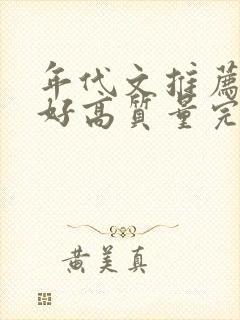 年代文推薦
好高質量完
黄美真